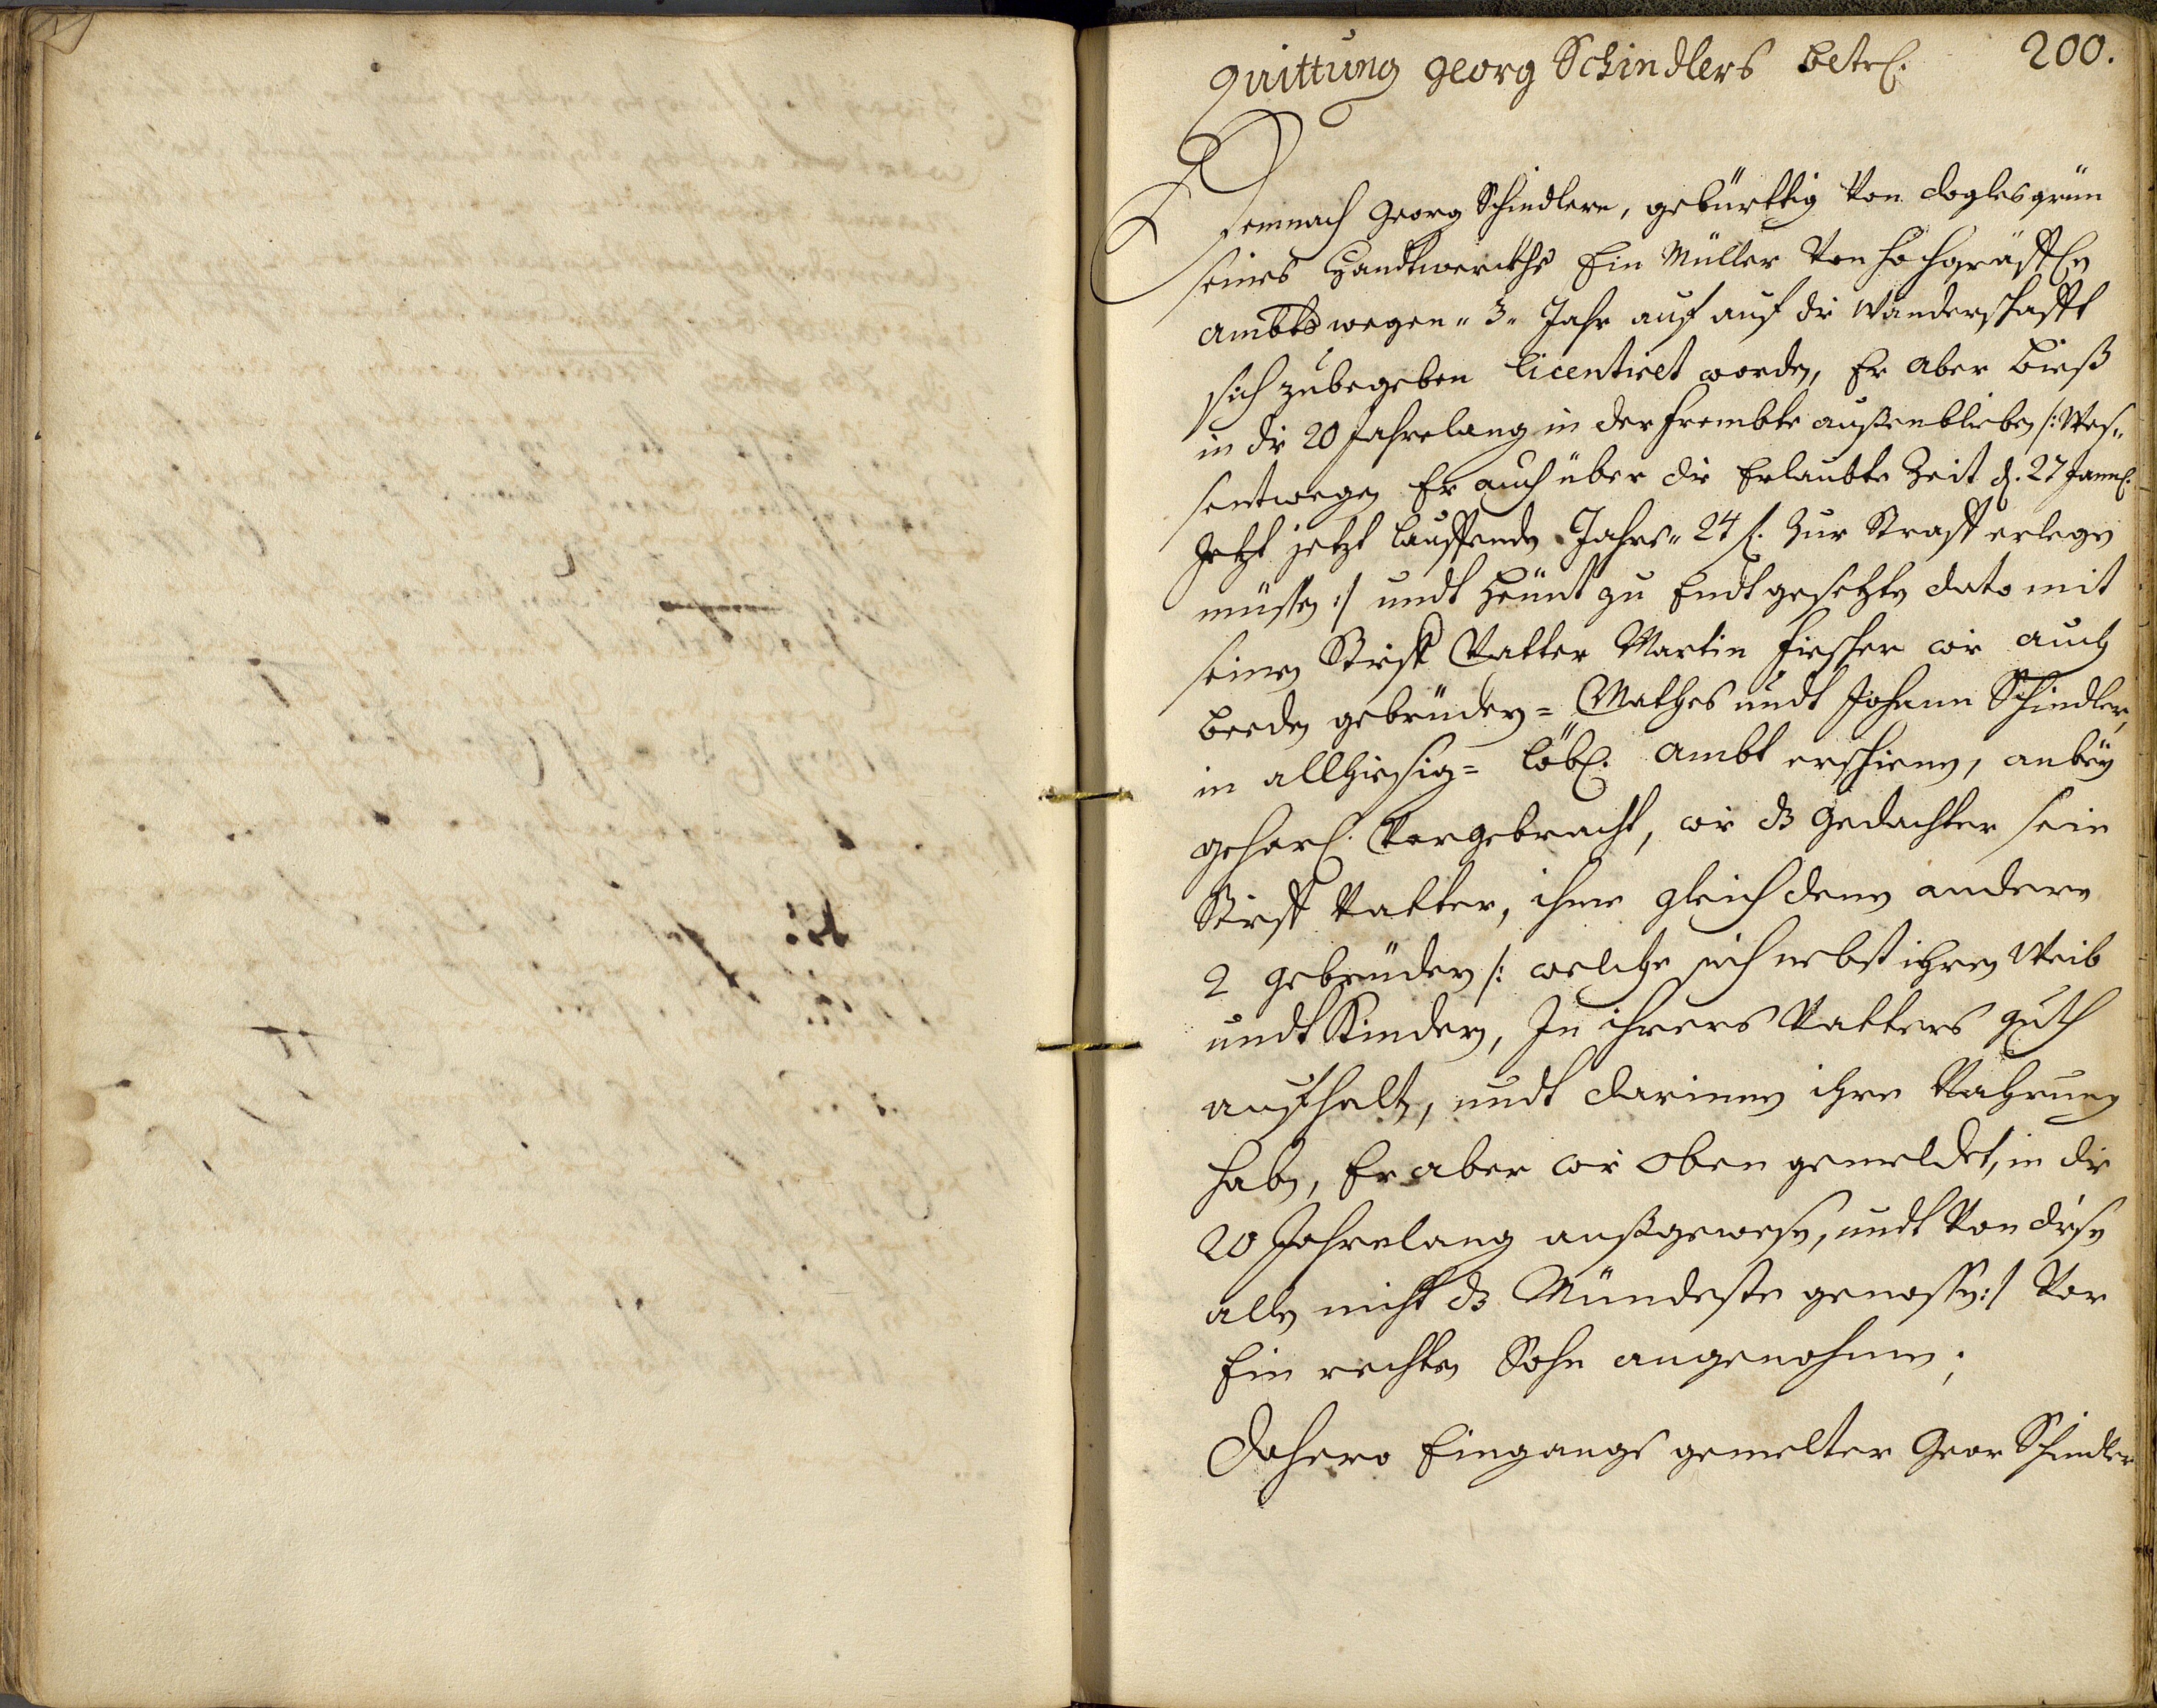 Quittung Georg Schindlers betrl.
200.
Demnach Georg Schindlern, gebürttig Von doglesgrün
seines Handtwerckhs Ein Müller Von hochgräffl.
Ambts wegen „3„ Jahr auf auf die Wanderschafft
sich zubegeben licentiret worden, Er aber bieß
in die 20 Jahrelang in der frembte außenblieben /:Wes„
sentwegen Er auch über die Erlaubte Zeit d. 27 Jann.
Jetzt jetzt lauffenden Jahrs„ 24 f. Zur Straff erlegen
müssen:/ undt heünt zu Endt gesetzten dato mit
seinen Stieff Vatter Martin fiescher wie auch
beeden gebrüdern= Mathes undt Johann Schindler,
in allhiesig= löbl. Ambt erschienen, anbey
gehorl. Vorgebracht, wie dz gedachter sein
Stieff Vatter, ihme gleich denen andern
2 gebrüdern /: welche sich nebst ihren Weib
undt Kindern, In ihrers Vatters guth
aufhalten, undt darinnen ihre Nahrung
haben, Er aber wie oben gemeldet, in die
20 Jahrelang außgewesen, undt Von diesen
allen nicht dz Mündeste genossen:/ Vor
Ein rechten Sohn angenohmen;
Dahero Eingangs gemelter Geor Schindler